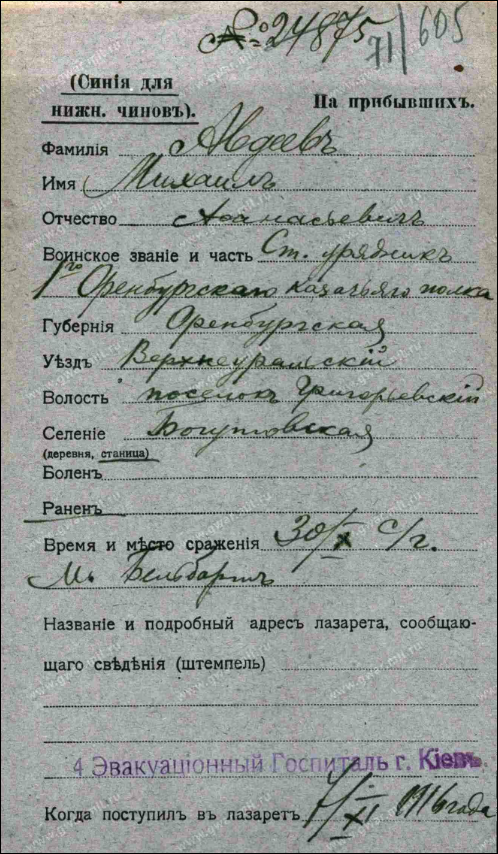 № 24875 71/605
(Синія для
нижн. чиновъ).
На прибывшихъ.
Фамилія Авдеевъ
Имя Михаилъ
Отчество Афанасьевичъ
Воинское званіе и часть Ст. урядникъ
1го Оренбургскаго казачьяго полка
Губернія Оренбургская
Уѣздъ Верхнеуральскій
Волость поселокъ Григорьевскій
Селеніе
(деревня, станица)
Боленъ
Раненъ
Время и мѣсто сраженія 30/X с/г.
Названіе и подробный адресъ лазарета, сообщаю-
щаго свѣдѣнія (штемпель)
4 Эвакуаціонный Госпиталь г. Кіевъ
Когда поступилъ въ лазаретъ 7/XI 1916 года